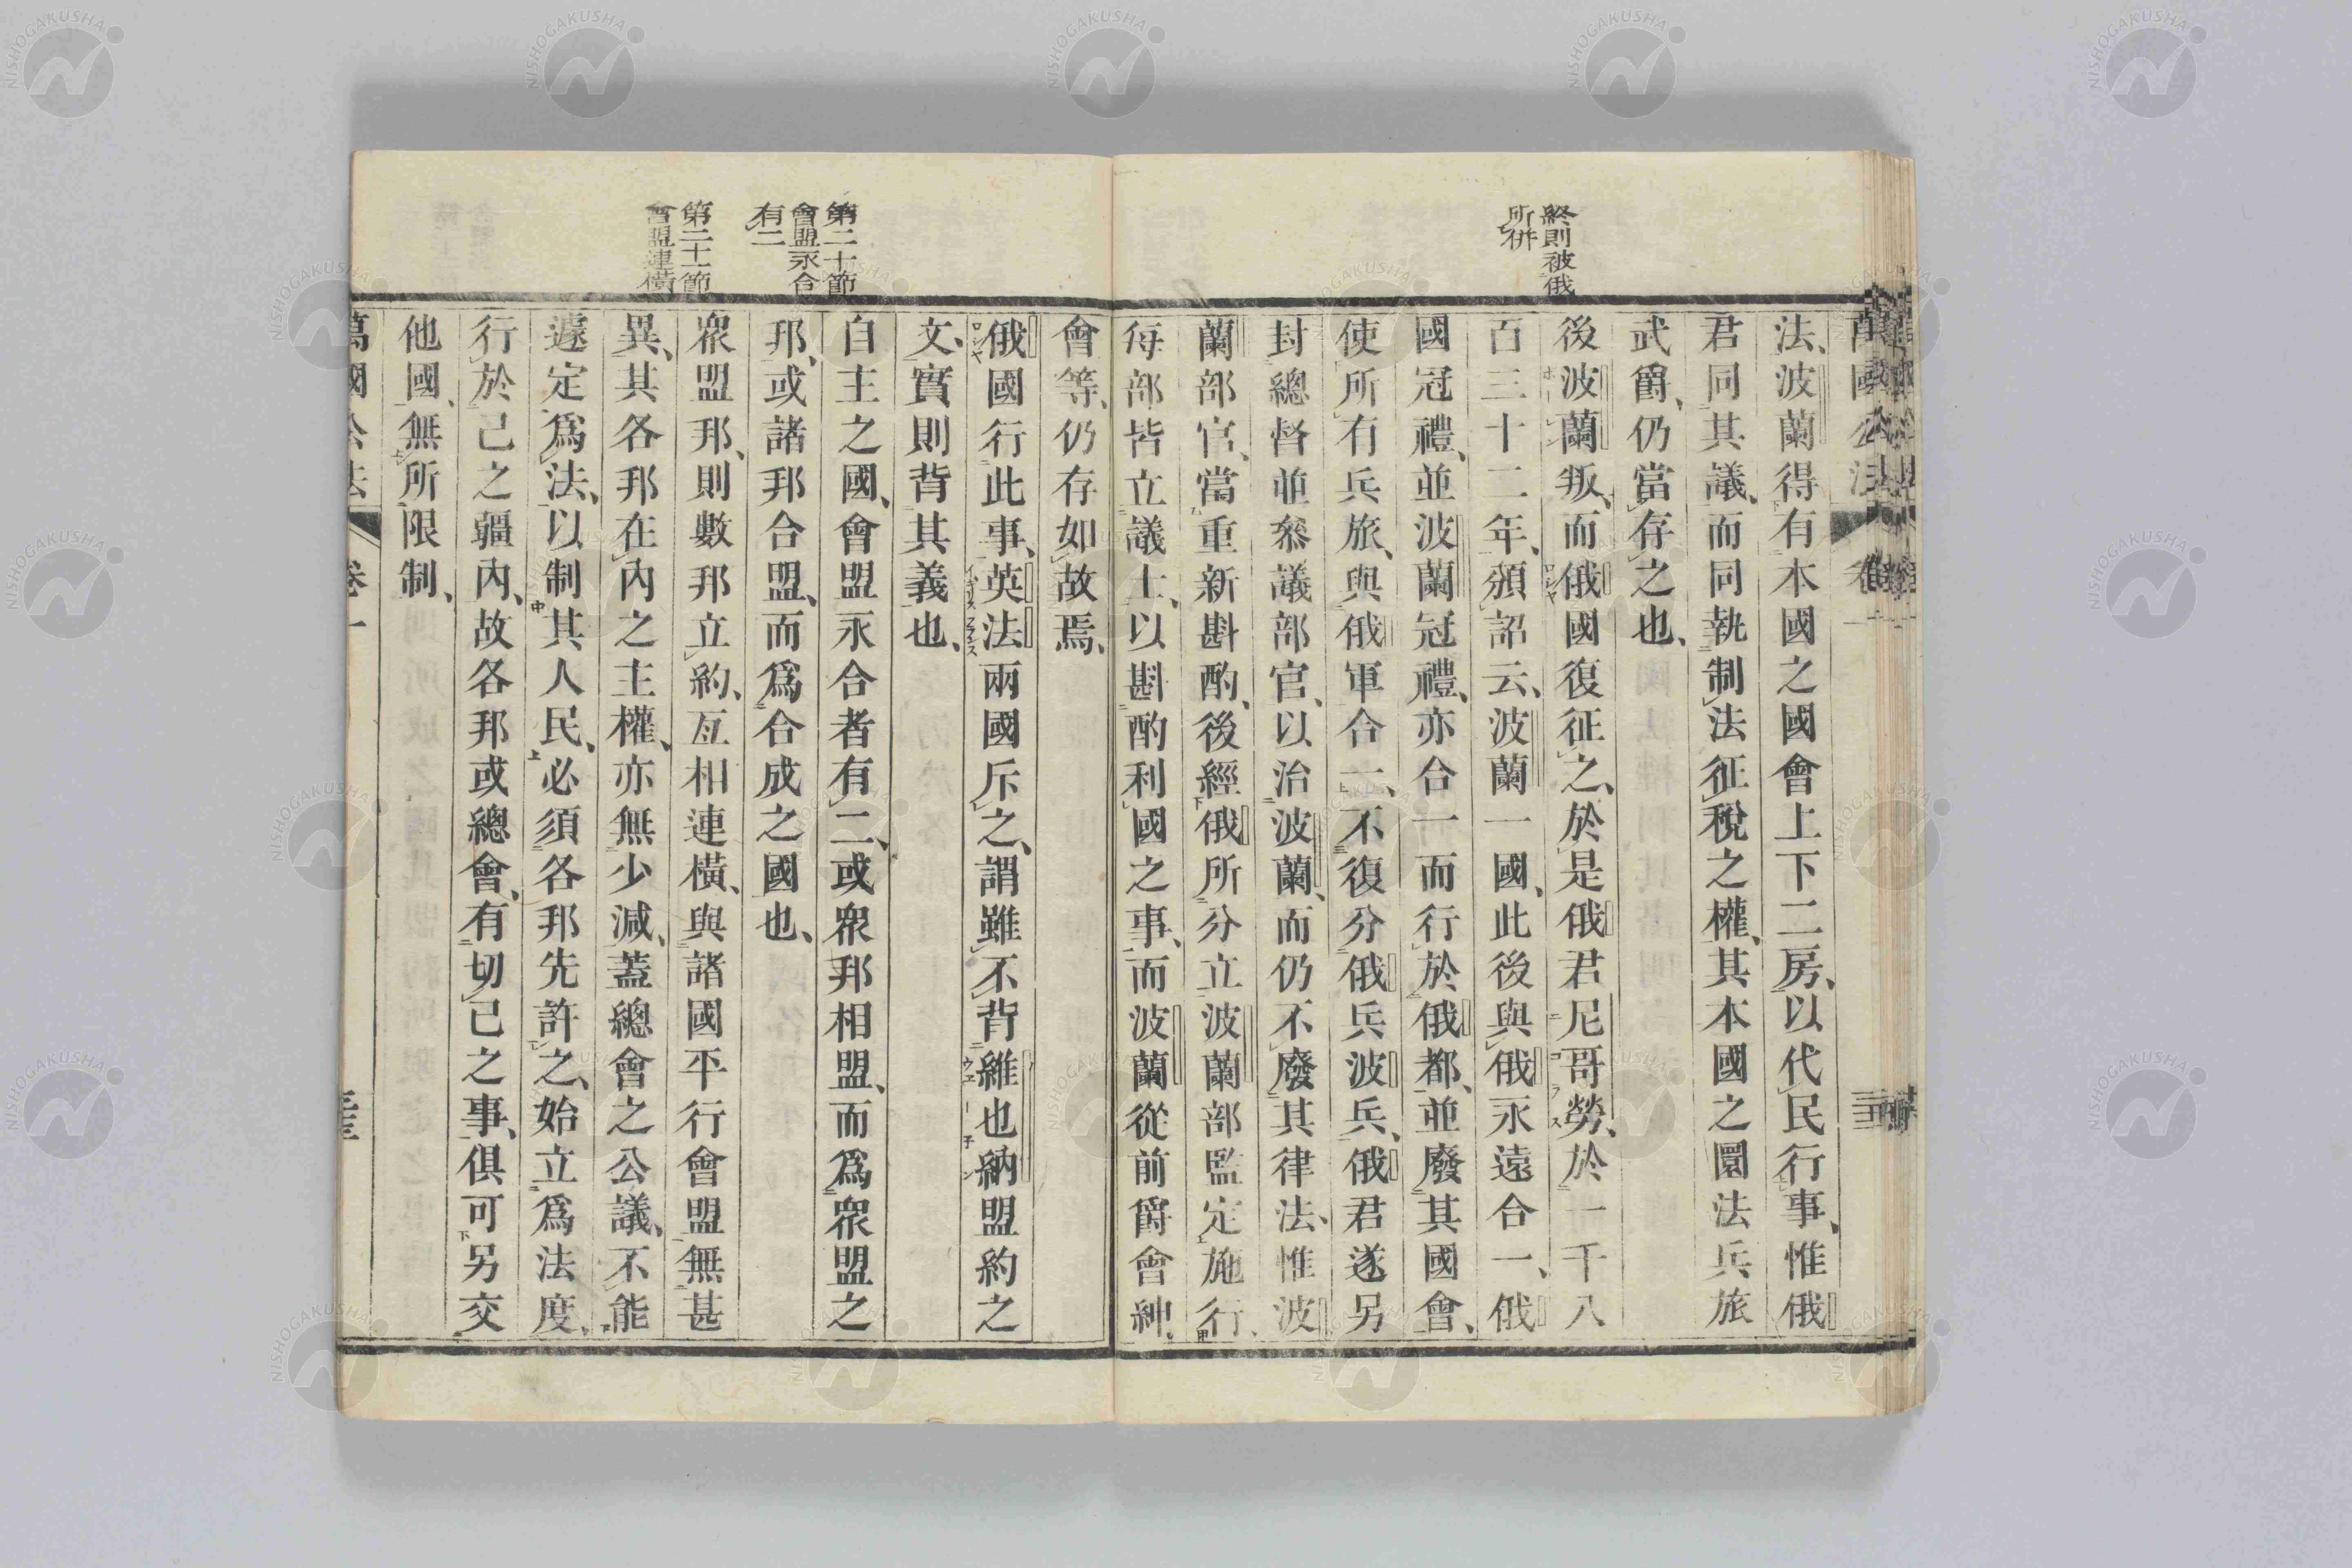 終則被俄
所併
法、波蘭得有本國之國會上下二房、以代民行事、惟俄
君同其議、而同執制法征稅之權、其本國之圜法兵旅
武爵、仍當存之也、
後波蘭叛、而俄國復征之、於是俄君尼哥勞、於一千八
百三十二年、頒詔云、波蘭一國、此後與俄永遠合一、俄
國冠禮、並波蘭冠禮、亦合一而行於俄都、並廢其國會、
使所有兵旅、與俄軍合一、不復分俄兵波兵、俄君遂另
封總督並叅議部官、以治波蘭、而仍不廢其律法、惟波
蘭部官、當重新斟酌、後經俄所分立波蘭部監定施行、
每部皆立議士、以斟酌利國之事、而波蘭從前爵會紳、
會等、仍存如故焉、
俄國行此事、英法兩國斥之、謂雖不背維也納盟約之
文、實則背其義也、
第二十節
會盟永合
有二
自主之國、會盟永合者有二、或衆邦相盟、而爲衆盟之
邦、或諸邦合盟、而爲合成之國也、
第二十一節
會盟連橫
衆盟邦、則數邦立約、互相連橫、與諸國平行會盟無甚
異、其各邦在內之主權、亦無少減、蓋總會之公議、不能
遽定爲法、以制其人民、必須各邦先許之、始立爲法度、
行於己之疆內、故各邦或總會、有切己之事、俱可另交
他國、無所限制、
萬國公法 卷一